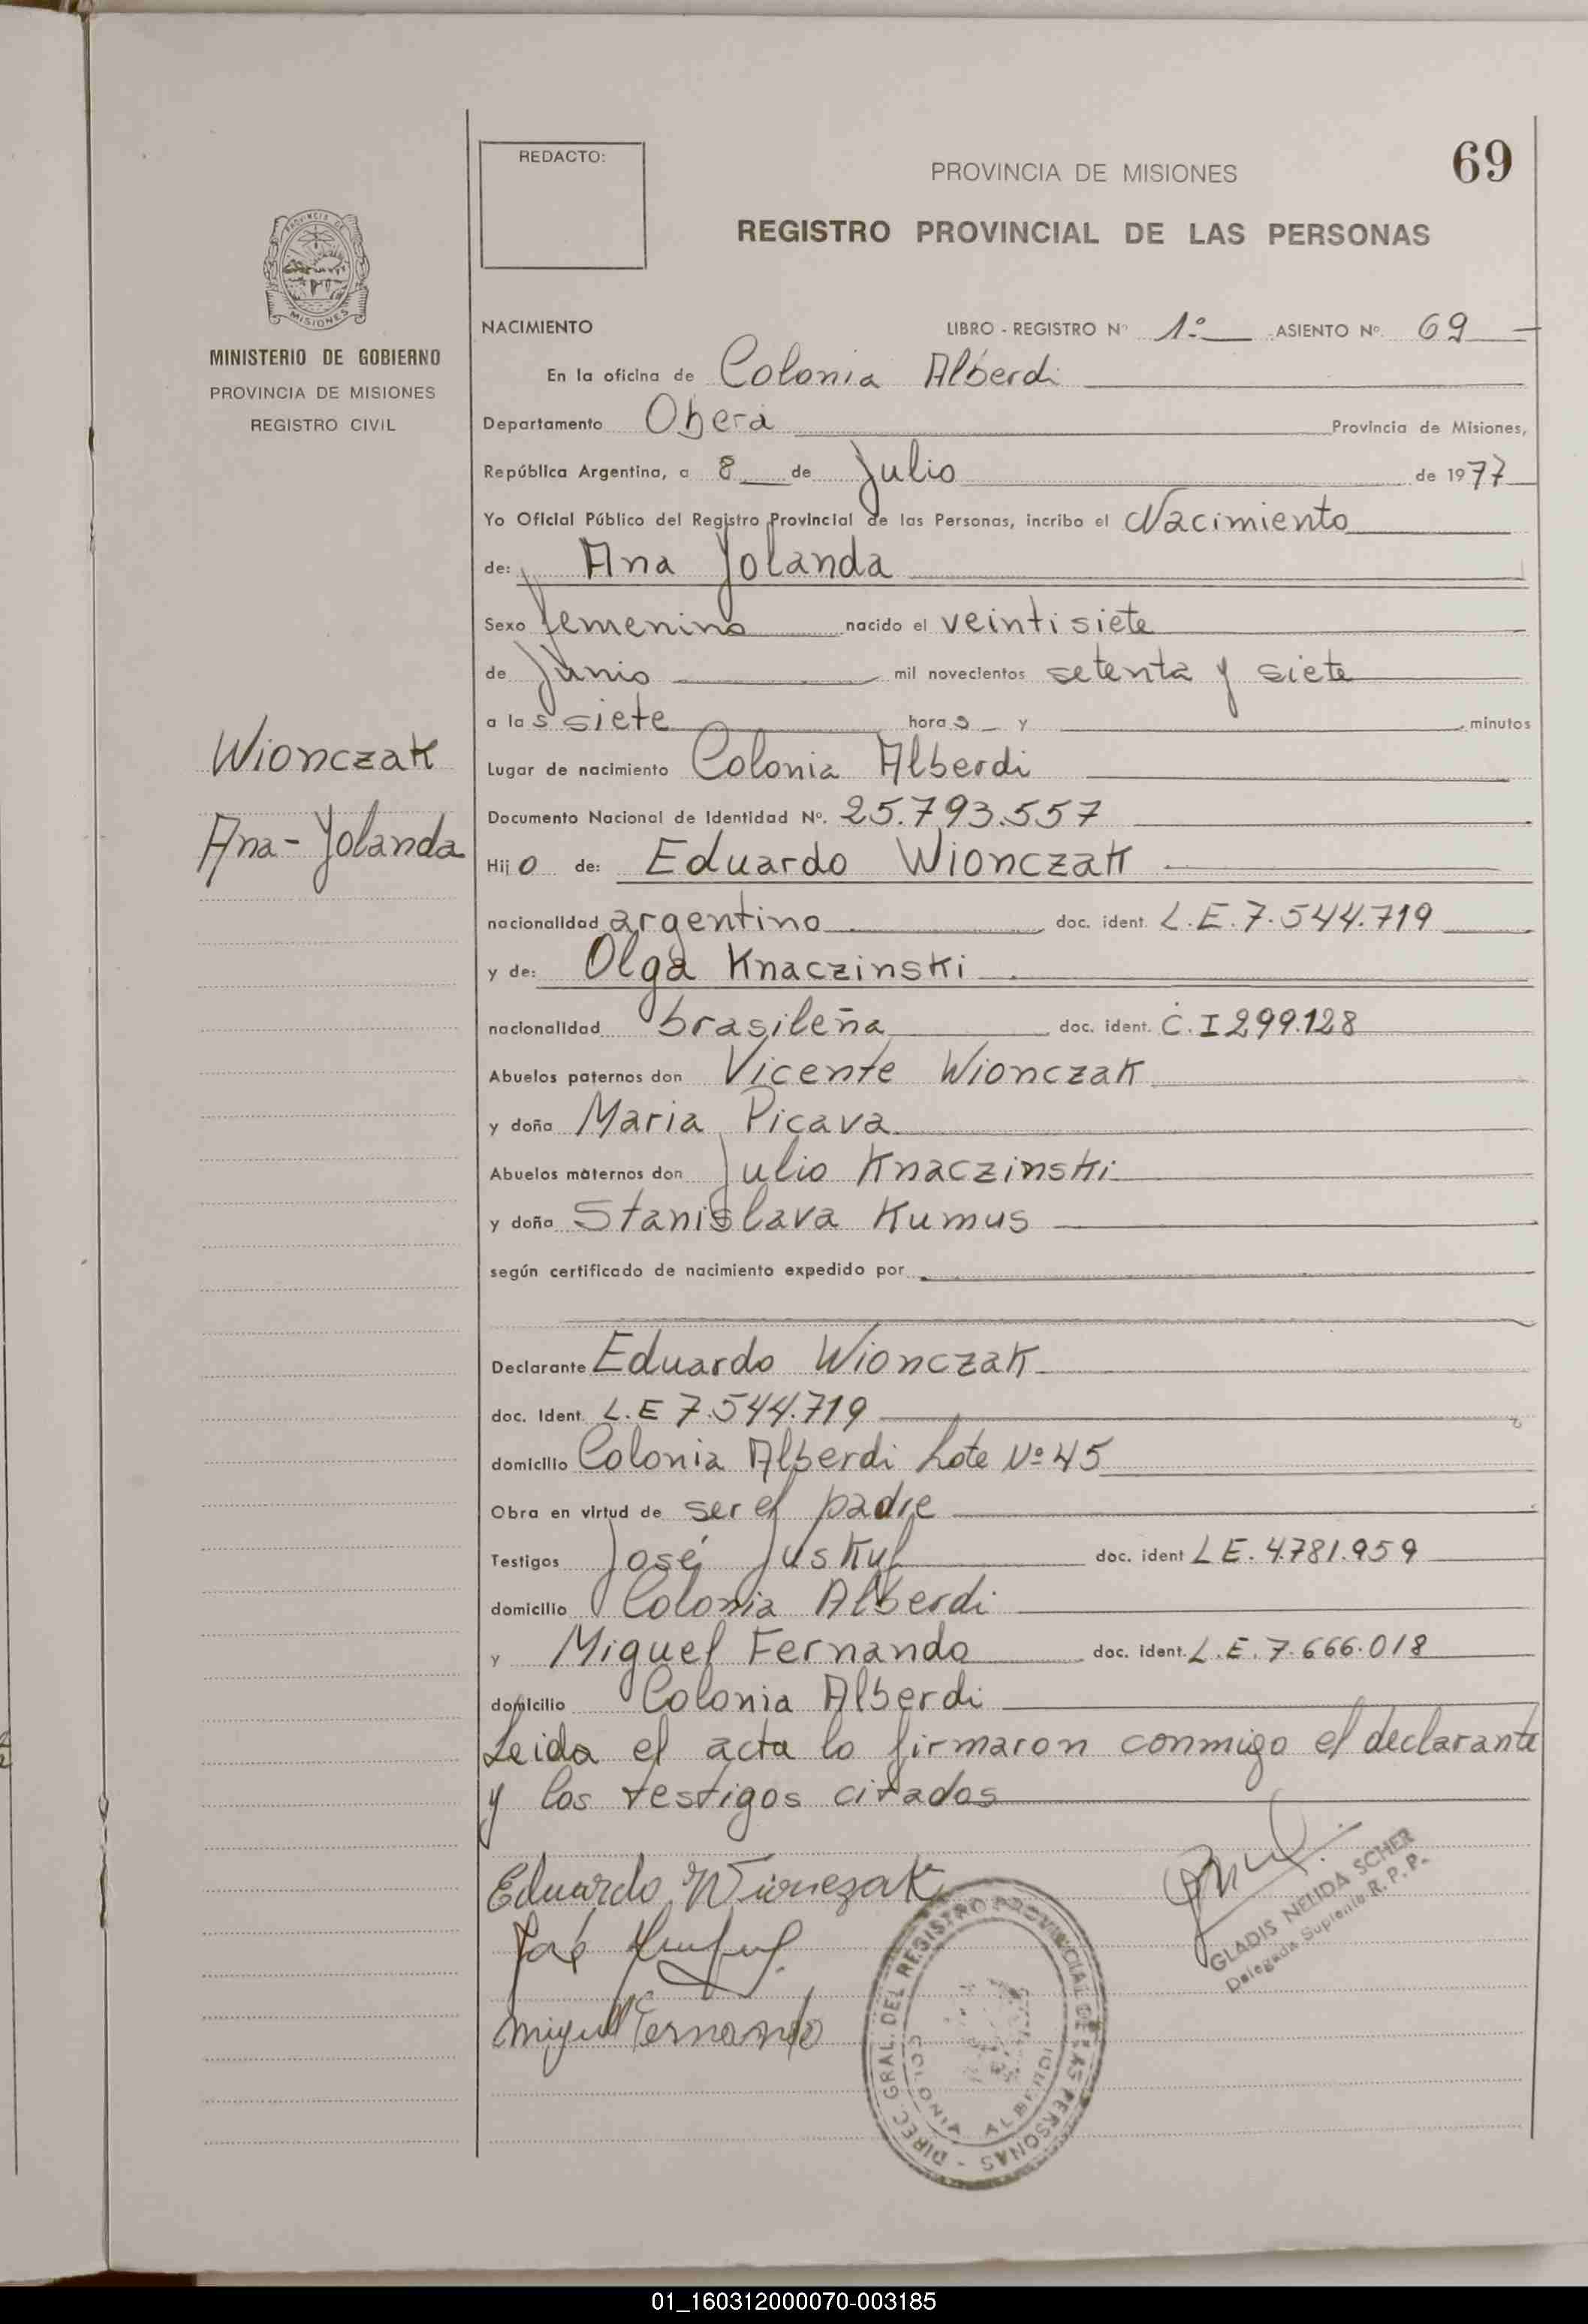 69
REDACTO:
PROVINCIA DE MISIONES
REGISTRO PROVINCIAL DE LAS PERSONAS
PROVINCIA DE
MISIONES
MINISTERIO DE GOBIERNO
PROVINCIA DE MISIONES
REGISTRO CIVIL
Wionczak
Ana-Yolanda
NACIMIENTO LIBRO - REGISTRO Nº 1º ASIENTO Nº 69
En la oficina de Colonia Alberdi
Departamento Oberá Provincia de Misiones,
República Argentina, a 8 de Julio de 1977
Yo Oficial Público del Registro Provincial de las Personas, incribo el Nacimiento
de: Ana Yolanda
Sexo femenino nacido el veintisiete
de Junio mil novecientos setenta y siete
a las siete horas y minutos
Lugar de nacimiento Colonia Alberdi
Documento Nacional de Identidad Nº. 25.793.557
Hijo de: Eduardo Wionczak
nacionalidad argentino doc. ident. L.E.7.544.719
y de: Olga Knaczinski
nacionalidad brasileña doc. ident. C.I 299.128
Abuelos paternos don Vicente Wionczak
y doña Maria Picava
Abuelos maternos don Julio Knaczinski
y doña Stanislava Kumus
según certificado de nacimiento expedido por
Declarante Eduardo Wionczak
doc. Ident. L.E 7.544.719
domicilio Colonia Alberdi Lote Nº 45
Obra en virtud de ser el padre
Testigos José Juskuf doc. ident L E. 4.781.959
domicilio Colonia Alberdi
y Miguel Fernando doc. ident. L.E. 7.666.018
domicilio Colonia Alberdi
Leida el acta lo firmaron conmigo el declarante
y los testigos citados
Eduardo Wionczak
José
Miguel Fernando
GLADIS NELIDA SCHER
Delegada Suplente R. P. P.
DIREC. GRAL. DEL REGISTRO PROVINCIAL DE LAS PERSONAS -
COLONIA ALBERDI
01_160312000070-003185